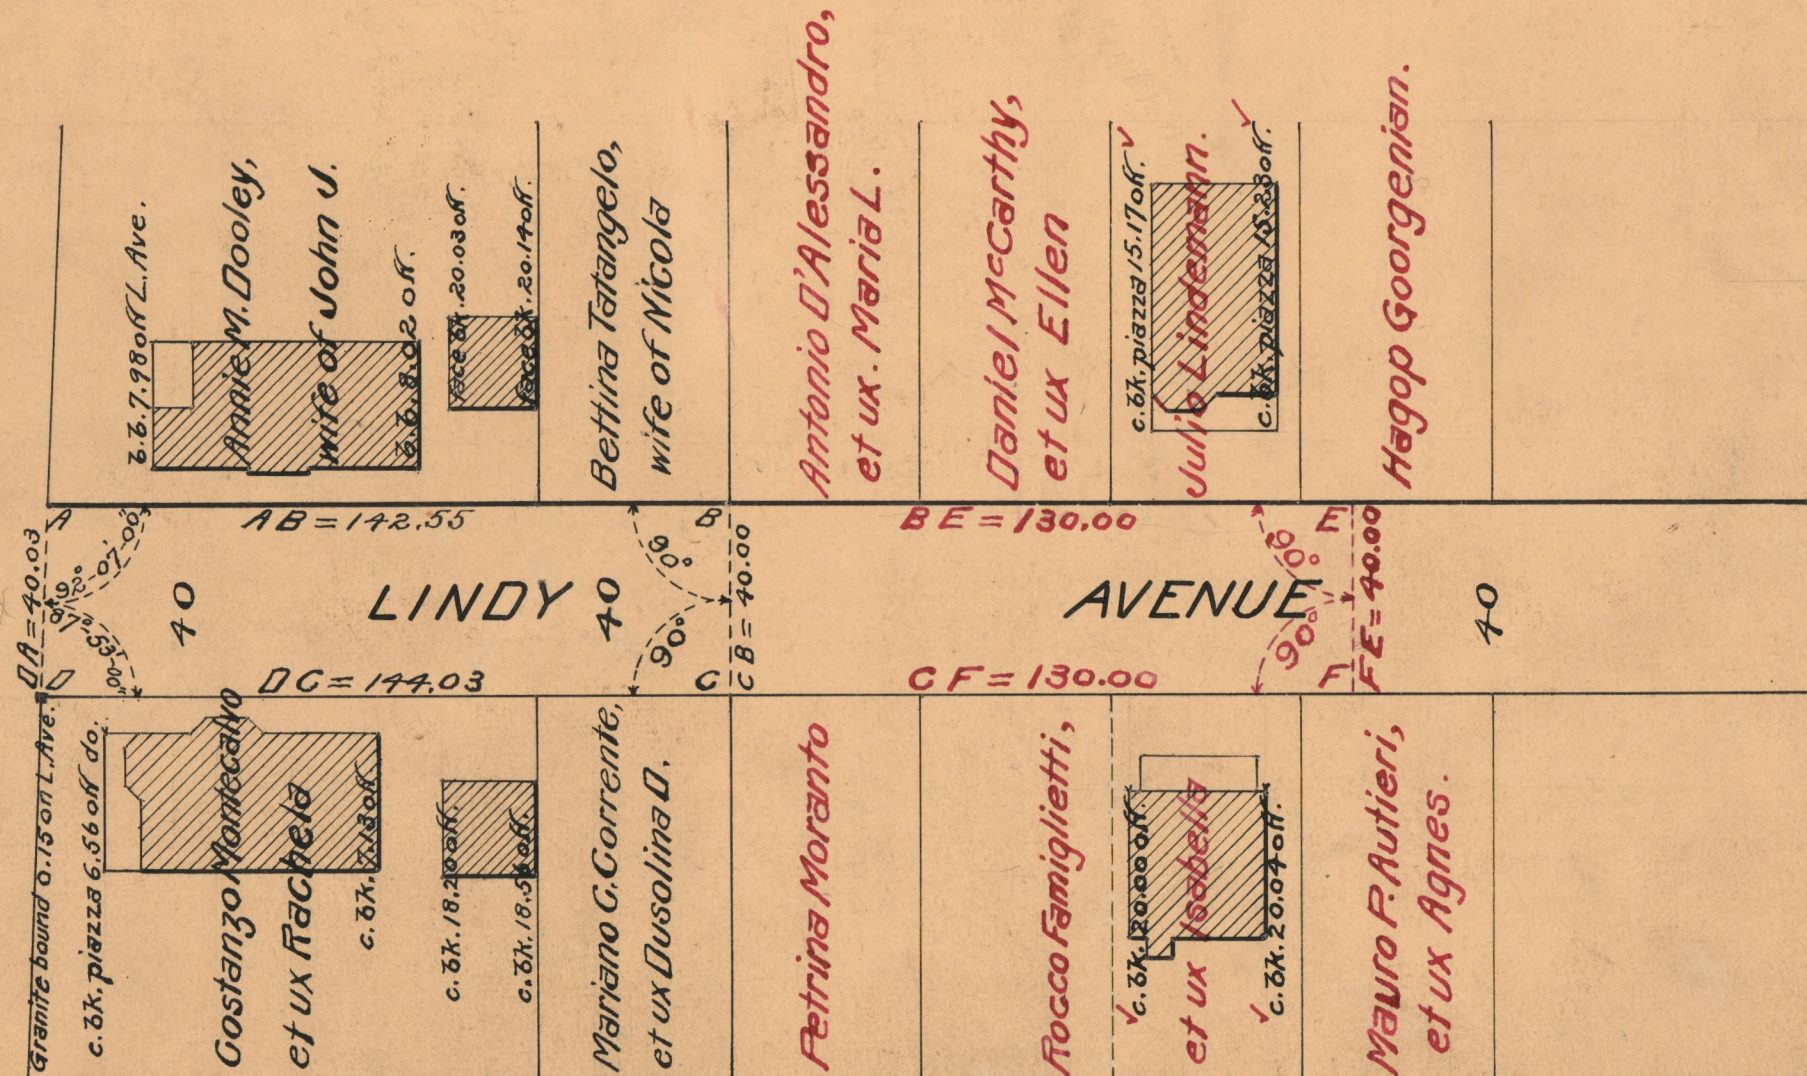 b.b.7.98 off L.Ave.
Annie M. Dooley,
wife of John J.
b.b.8.02 off.
face bk. 20.03 off.
face bk. 20.14 off.
Bettina Tatangelo,
wife of Nicola
Antonio D'Alessandro,
et ux. Maria L.
Daniel McCarthy,
et ux Ellen
c.bk.piazza 15.17 off.
Julio Lindemann.
c.bk.piazza 15.23 off.
Hagop Goorgenian.
A
AB = 142.55
B
BE = 130.00
E
DA = 40.03
92°-07'-00"
87°-53'-00"
40
LINDY
40
90°
90°
CB = 40.00
AVENUE
90°
90°
FE = 40.00
40
D
DC = 144.03
C
CF = 130.00
F
Granite bound 0.15 on L.Ave.
c.bk.piazza 6.56 off do.
Costanzo Montecalvo
et ux Rachela
c.bk.7.13 off
c.bk.18.20 off.
c.bk.18.56 off.
Mariano C. Corrente,
et ux Dusolina D.
Petrina Moranto
Rocco Famiglietti,
c.bk.20.00 off.
et ux Isabella
c.bk.20.04 off.
Mauro P. Autieri,
et ux Agnes.